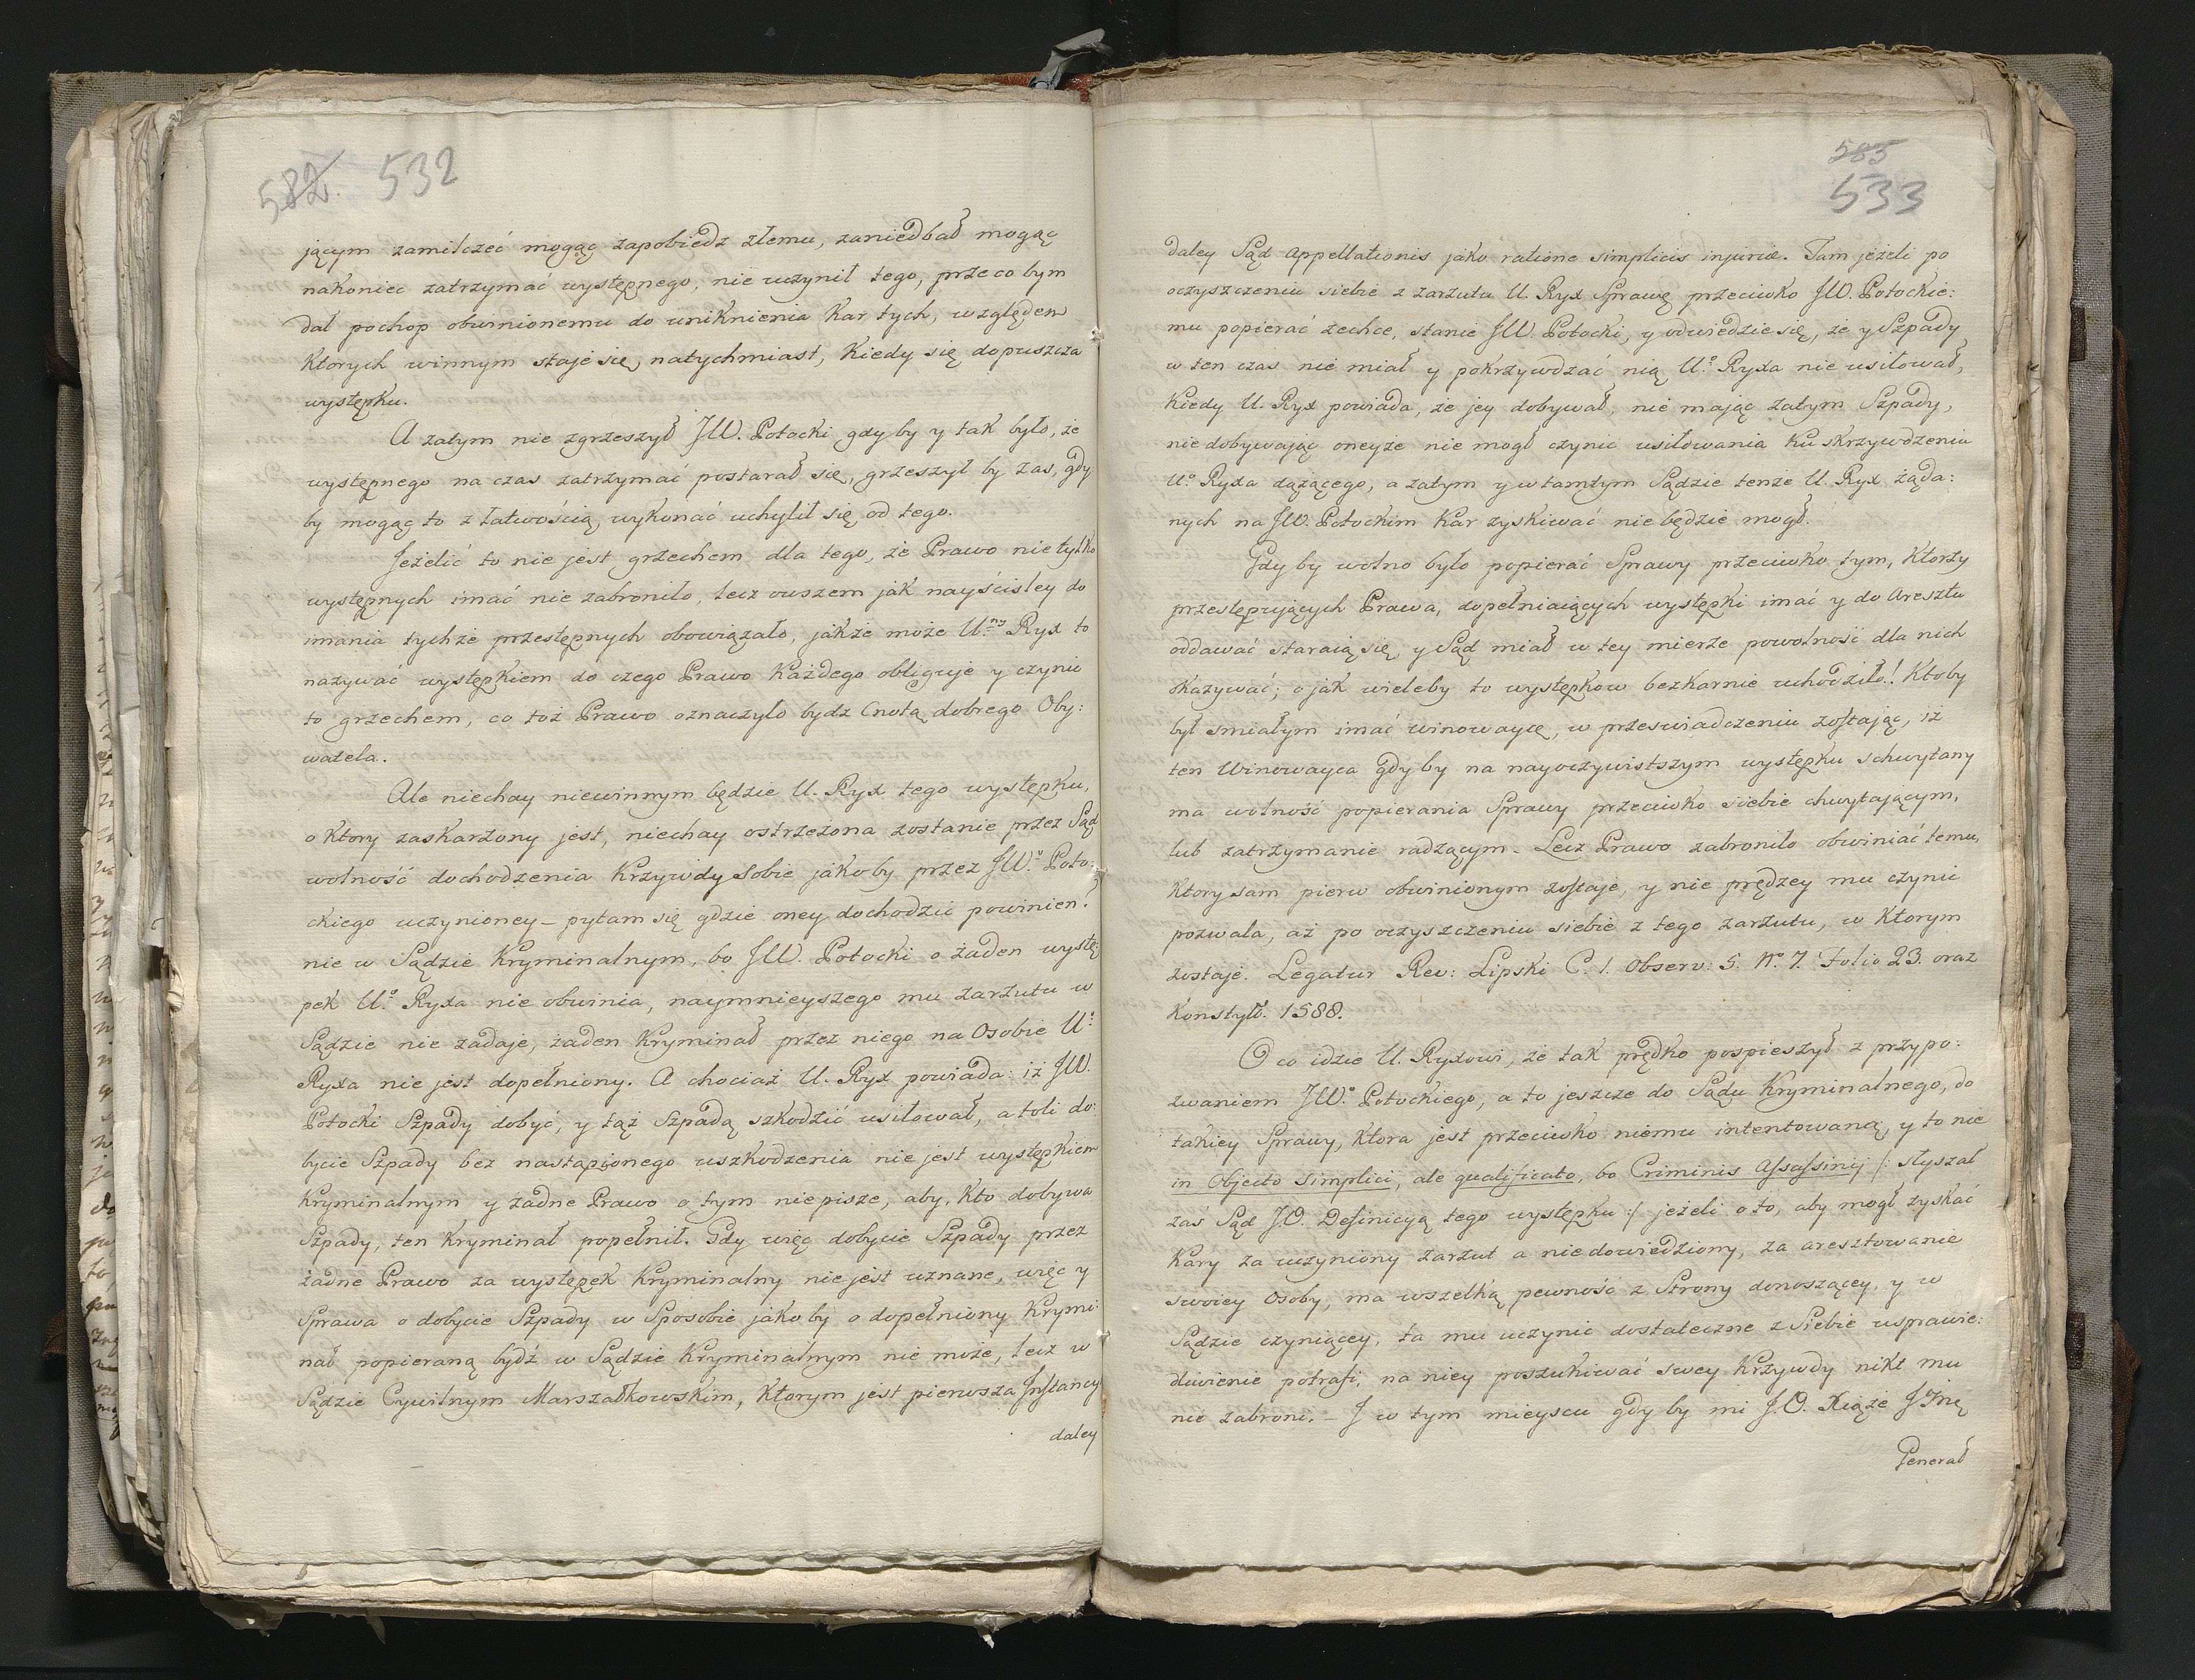 582. 532
jącym zamilczeć mogąc zapobiedz złemu, zaniedbał mogąc
nakoniec zatrzymać występnego, nie uczynił tego, przeco bym
dał pochop obwinionemu do uniknienia Kar tych, względem
Ktorych winnym staje się, natychmiast, Kiedy się dopuszcza
występku.
A zatym nie zgrzeszył JW. Potocki gdyby y tak było, że
występnego na czas zatrzymać postarał się, grzeszył by zas, gdy
by mogąc to z łatwością wykonać uchylił się od tego.
Jeżelić to nie jest grzechem dla tego, że Prawo nie tylko
występnych imać nie zabroniło, lecz owszem jak nayściśley do
imania tychże przestępnych obowiązało, jakże może U.ny Ryx to
nazywać występkiem do czego Prawo Każdego obliguje y czynić
to grzechem, co toż Prawo oznaczyło bydz Cnotą dobrego Oby:
watela.
Ale niechay niewinnym będzie U. Ryx tego występku,
o Ktory zaskarżony jest, niechay ostrzeżona zostanie przez Sąd
wolność dochodzenia Krzywdy Sobie jakoby przez JW.o Poto:
ckiego uczynioney – pytam się gdzie oney dochodzić powinien?
nie w Sądzie Kryminalnym, bo JW. Potocki o żaden wystę:
pek U.o Ryxa nie obwinia, naymnieyszego mu zarzutu w
Sądzie nie zadaje, żaden Kryminał przez niego na Osobie U.o
Ryxa nie jest dopełniony. A chociaż U. Ryx powiada: iż JW.
Potocki Szpady dobyć, y tąż Szpadą szkodzić usiłował, atoli do:
bycie Szpady bez nastąpionego uszkodzenia nie jest występkiem
Kryminalnym y żadne Prawo o tym nie pisze, aby, Kto dobywa
Szpady, ten Kryminał popełnił. Gdy więc dobycie Szpady przez
żadne Prawo za występek Kryminalny nie jest uznane, więc y
Sprawa o dobycie Szpady w Sposobie jakoby o dopełniony Krymi:
nał popieraną bydź w Sądzie Kryminalnym nie może, lecz w
Sądzie Cywilnym Marszałkowskim, Ktorym jest pierwsza Instancy
daley
585
533
daley Sąd Appellationis jako ratione simplicis injuriæ. Tam jeżeli po
oczyszczeniu siebie z zarzutu U. Ryx Sprawę przeciwko JW. Potockie:
mu popierać zechce, stanie JW. Potocki, y odwiedzie się, że y Szpady
w ten czas nie miał y pokrzywdzać nią U.o Ryxa nie usiłował,
Kiedy U. Ryx powiada, że jey dobywał, nie mając zatym Szpady,
nie dobywając oneyże nie mogł czynić usiłowania Ku skrzywdzeniu
U.o Ryxa dążącego, a zatym y w tamtym Sądzie tenże U. Ryx żąda:
nych na JW. Potockim Kar zyskiwać nie będzie mogł.
Gdyby wolno było popierać Sprawy przeciwko tym, Ktorzy
przestępujących Prawa, dopełniaiących występki imać y do Aresztu
oddawać staraią się, y Sąd miał w tey mierze powolność dla nich
okazywać; o jak wieleby to występkow bezkarnie uchodziło! Ktoby
był smiałym imać winowaycę, w przeswiadczeniu zostając, iż
ten Winowayca gdyby na nayoczywistszym występku schwytany
ma wolność popierania Sprawy przeciwko siebie chwytającym,
lub zatrzymanie radzącym. Lecz Prawo zabroniło obwiniać temu,
Ktory sam pierw obwinionym zostaje, y nie prędzey mu czynić
pozwala, aż po oczyszczeniu siebie z tego zarzutu, w Ktorym
zostaje. Legatur Rev: Lipski C. 1. Observ: 5. No. 7. Folio 23. oraz
Konstyt. 1588.
O co idzie U. Ryxowi, że tak prędko pospieszył z przypo:
zwaniem JW.o Potockiego, a to jeszcze do Sądu Kryminalnego, do
takiey Sprawy, Ktora jest przeciwko niemu intentowaną, y to nie
in Objecto simplici, ale qualificato, bo Criminis Assassinij /: słyszał
zaś Sąd J.O. Definicyą tego występku :/ jeżeli o to, aby mogł zyskać
Kary za uczyniony zarzut a niedowiedziony, za aresztowanie
swoiey Osoby, ma wszelką pewność z Strony donoszącey, y w
Sądzie czyniącey, ta mu uczynić dostateczne z Siebie usprawie:
dliwienie potrafi, na niey poszukiwać swey Krzywdy nikt mu
nie zabroni. – J w tym mieyscu gdyby mi J.O. Xiąże
Generał